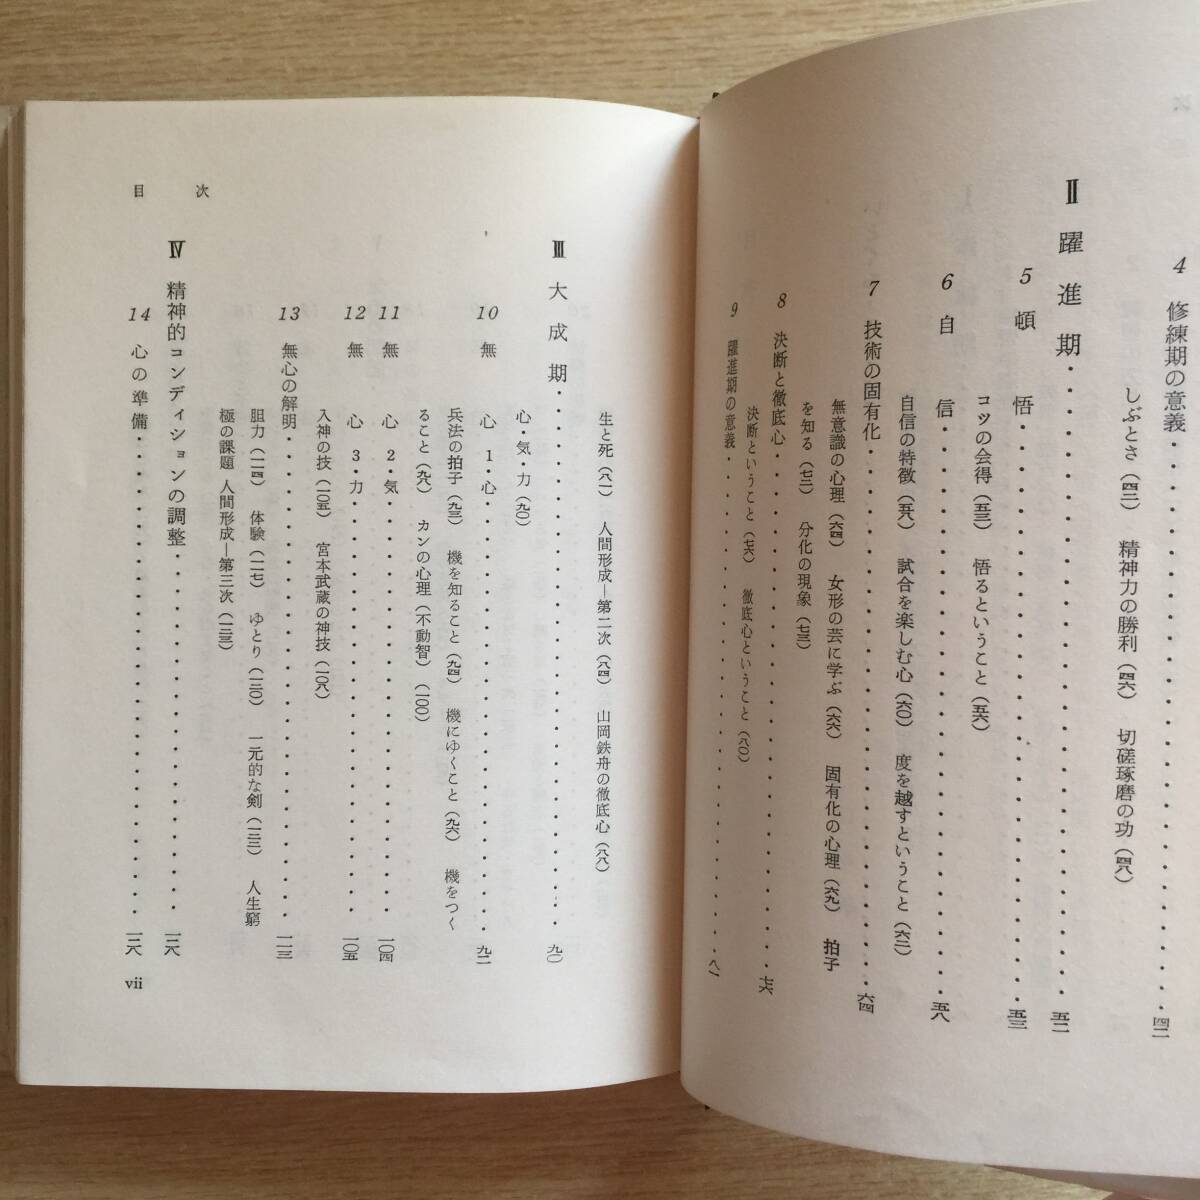 4 修練期の意義・・・・・・・・・・・・・・・・・・・・四二
しぶとさ（四二） 精神力の勝利（四六） 切磋琢磨の功（四八）
Ⅱ 躍進期・・・・・・・・・・・・・・・・・・・・五二
5 頓悟・・・・・・・・・・・・・・・・・・・・五三
コツの会得（五三） 悟るということ（五六）
6 自信・・・・・・・・・・・・・・・・・・・・五八
自信の特徴（五八） 試合を楽しむ心（六〇） 度を越すということ（六二）
7 技術の固有化・・・・・・・・・・・・・・・・・・・・六四
無意識の心理（六四） 女形の芸に学ぶ（六六） 固有化の心理（六九） 拍子
を知る（七二） 分化の現象（七三）
8 決断と徹底心・・・・・・・・・・・・・・・・・・・・七六
決断ということ（七六） 徹底心ということ（八〇）
9 躍進期の意義・・・・・・・・・・・・・・・・・・・・八一
生と死（八一） 人間形成―第二次（八四） 山岡鉄舟の徹底心（八八）
Ⅲ 大成期・・・・・・・・・・・・・・・・・・・・九〇
心・気・力（九〇）
10 無心 1・心・・・・・・・・・・・・・・・・・・・・九二
兵法の拍子（九三） 機を知ること（九四） 機にゆくこと（九六） 機をつく
ること（九八） カンの心理（不動智）（一〇〇）
11 無心 2・気・・・・・・・・・・・・・・・・・・・・一〇四
12 無心 3・力・・・・・・・・・・・・・・・・・・・・一〇五
入神の技（一〇五） 宮本武蔵の神技（一〇八）
13 無心の解明・・・・・・・・・・・・・・・・・・・・一一三
胆力（一一四） 体験（一二七） ゆとり（一三〇） 一元的な剣（一三三） 人生窮
極の課題 人間形成―第三次（一三三）
Ⅳ 精神的コンディションの調整・・・・・・・・・・・・・・・・・・・・一三八
14 心の準備・・・・・・・・・・・・・・・・・・・・一三八
目次
vii